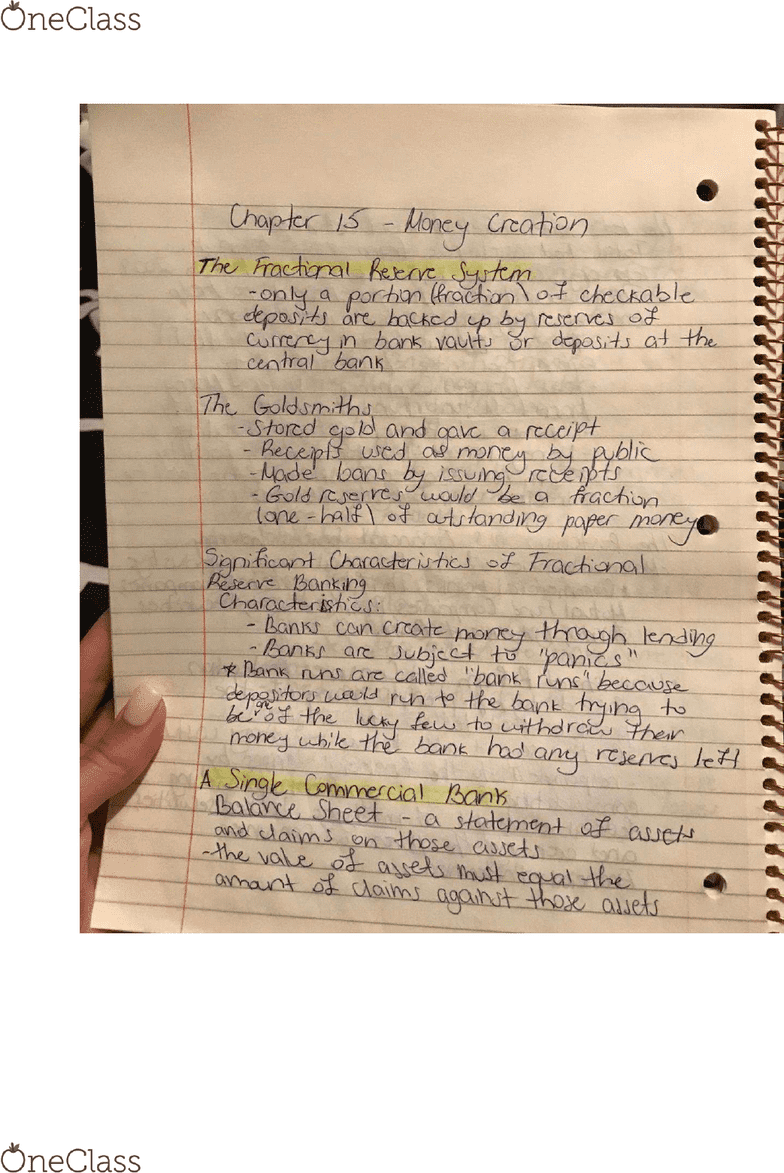 OneClass
Chapter 15 - Money Creation
The Fractional Reserve System
-only a portion (fraction) of checkable
deposits are backed up by reserves of
currency in bank vaults or deposits at the
central bank
The Goldsmiths
-Stored gold and gave a receipt
- Receipts used as money by public
-Made loans by issuing receipts
- Gold reserves would be a fraction
(one-half) of outstanding paper money
Significant Characteristics of Fractional
Reserve Banking
Characteristics:
- Banks can create money through lending
- Banks are subject to "panics"
* Bank runs are called "bank runs" because
depositors would run to the bank trying to
be one of the lucky few to withdraw their
money while the bank had any reserves left
A Single Commercial Bank
Balance Sheet - a statement of assets
and claims on those assets
-the value of assets must equal the
amount of claims against those assets
OneClass